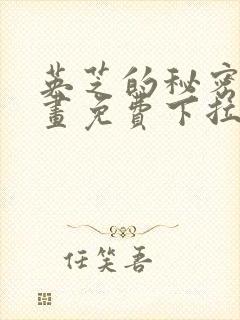 英芝的秘密
畫免費下拉
任笑吾